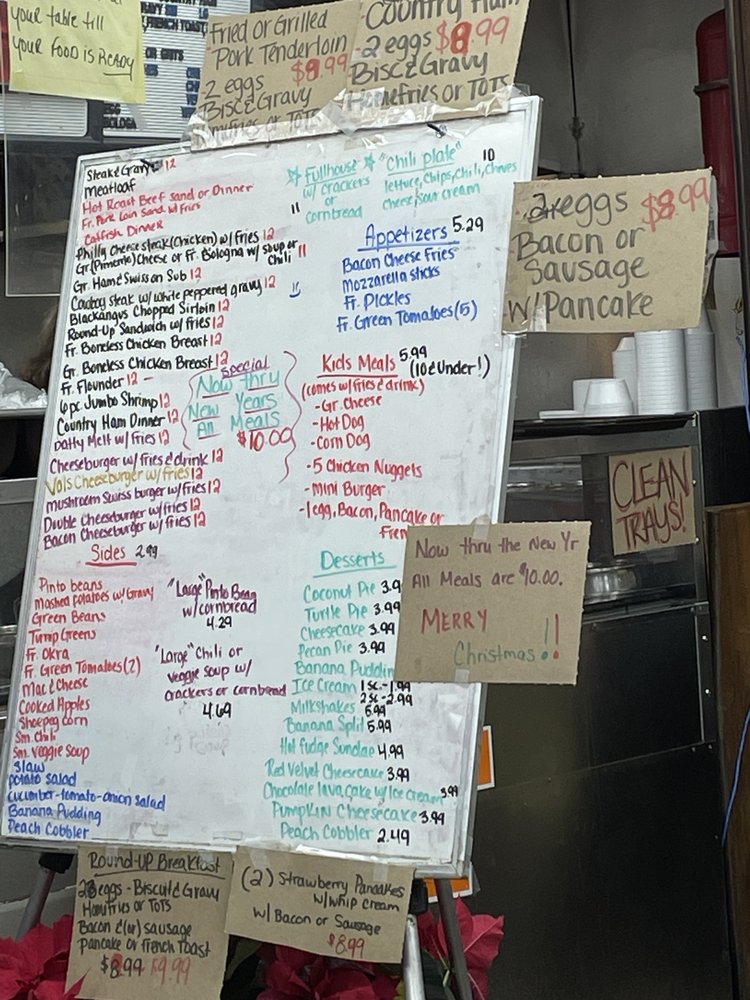 your table till
your FOOD is READY
Fried or Grilled
Pork Tenderloin
2 eggs $8.99
Bisc & Gravy
Country Ham
2 eggs $8.99
Bisc & Gravy
Homefries or TOTS
Steak & Gravy 12
Meatloaf
Hot Roast Beef Sand or Dinner
Fr. Pork Loin Sand w/ fries
Catfish Dinner 11
Philly Cheese steak (Chicken) w/ fries 12
Gr. (Pimento) Cheese or Fr. Bologna w/ soup or Chili 11
Gr Ham & Swiss on Sub 12
Cowboy steak w/ white peppered gravy 12
Blackangus Chopped Sirloin 12
Round-Up Sandwich w/ fries 12
Fr. Boneless Chicken Breast 12
Gr. Boneless Chicken Breast 12
Fr. Flounder 12
6pc. Jumbo Shrimp 12
Country Ham Dinner 12
Patty Melt w/ fries 12
Cheeseburger w/ fries & drink 12
Vols Cheeseburger w/ fries 12
mushroom Swiss burger w/ fries 12
Double Cheeseburger w/ fries 12
Bacon Cheeseburger w/ fries 12
special
Now thru
New Years
All Meals
$10.00
Sides 2.99
Pinto beans
mashed potatoes w/ Gravy
Green Beans
Turnip Greens
Fr. Okra
Fr. Green Tomatoes (2)
Mac & Cheese
Cooked Apples
Shoepeg corn
Sm. Chili
Sm. veggie Soup
Slaw
potato salad
cucumber-tomato-onion salad
Banana Pudding
Peach Cobbler
"Large" Pinto Bean
w/ cornbread
4.29
"Large" Chili or
veggie soup w/
crackers or cornbread
4.69
☆ Fullhouse ☆
w/ crackers
or
cornbread
"Chili plate" 10
lettuce, Chips, Chili, Chives
cheese, sour cream
Appetizers 5.29
Bacon Cheese Fries
Mozzarella sticks
Fr. Pickles
Fr. Green Tomatoes (5)
Kids Meals 5.99
(10 & Under!)
(comes w/ fries & drink)
- Gr. Cheese
- Hot Dog
- Corn Dog
- 5 Chicken Nuggets
- Mini Burger
- 1 egg, Bacon, Pancake or
Desserts
Coconut Pie 3.9
Turtle Pie 3.99
Cheesecake 3.99
Pecan Pie 3.99
Banana Puddin
Ice Cream 1 sc.-1.99
2 sc-2.99
Milkshakes 5.99
Banana Split 5.99
Hot fudge Sundae 4.99
Red Velvet Cheesecake 3.99
Chocolate lava cake w/ Ice cream 3.99
Pumpkin Cheesecake 3.99
Peach Cobbler 2.49
2 eggs $8.99
Bacon or
Sausage
W/ Pancake
CLEAN
TRAYS!
Now thru the New Yr
All Meals are $10.00.
MERRY
Christmas!!
Round-Up Breakfast
eggs - Biscuit & Gravy
Homfries or TOTS
Bacon & (or) sausage
Pancake or French Toast
$8.99 $9.99
(2) Strawberry Pancakes
w/ whip cream
w/ Bacon or Sausage
$8.99